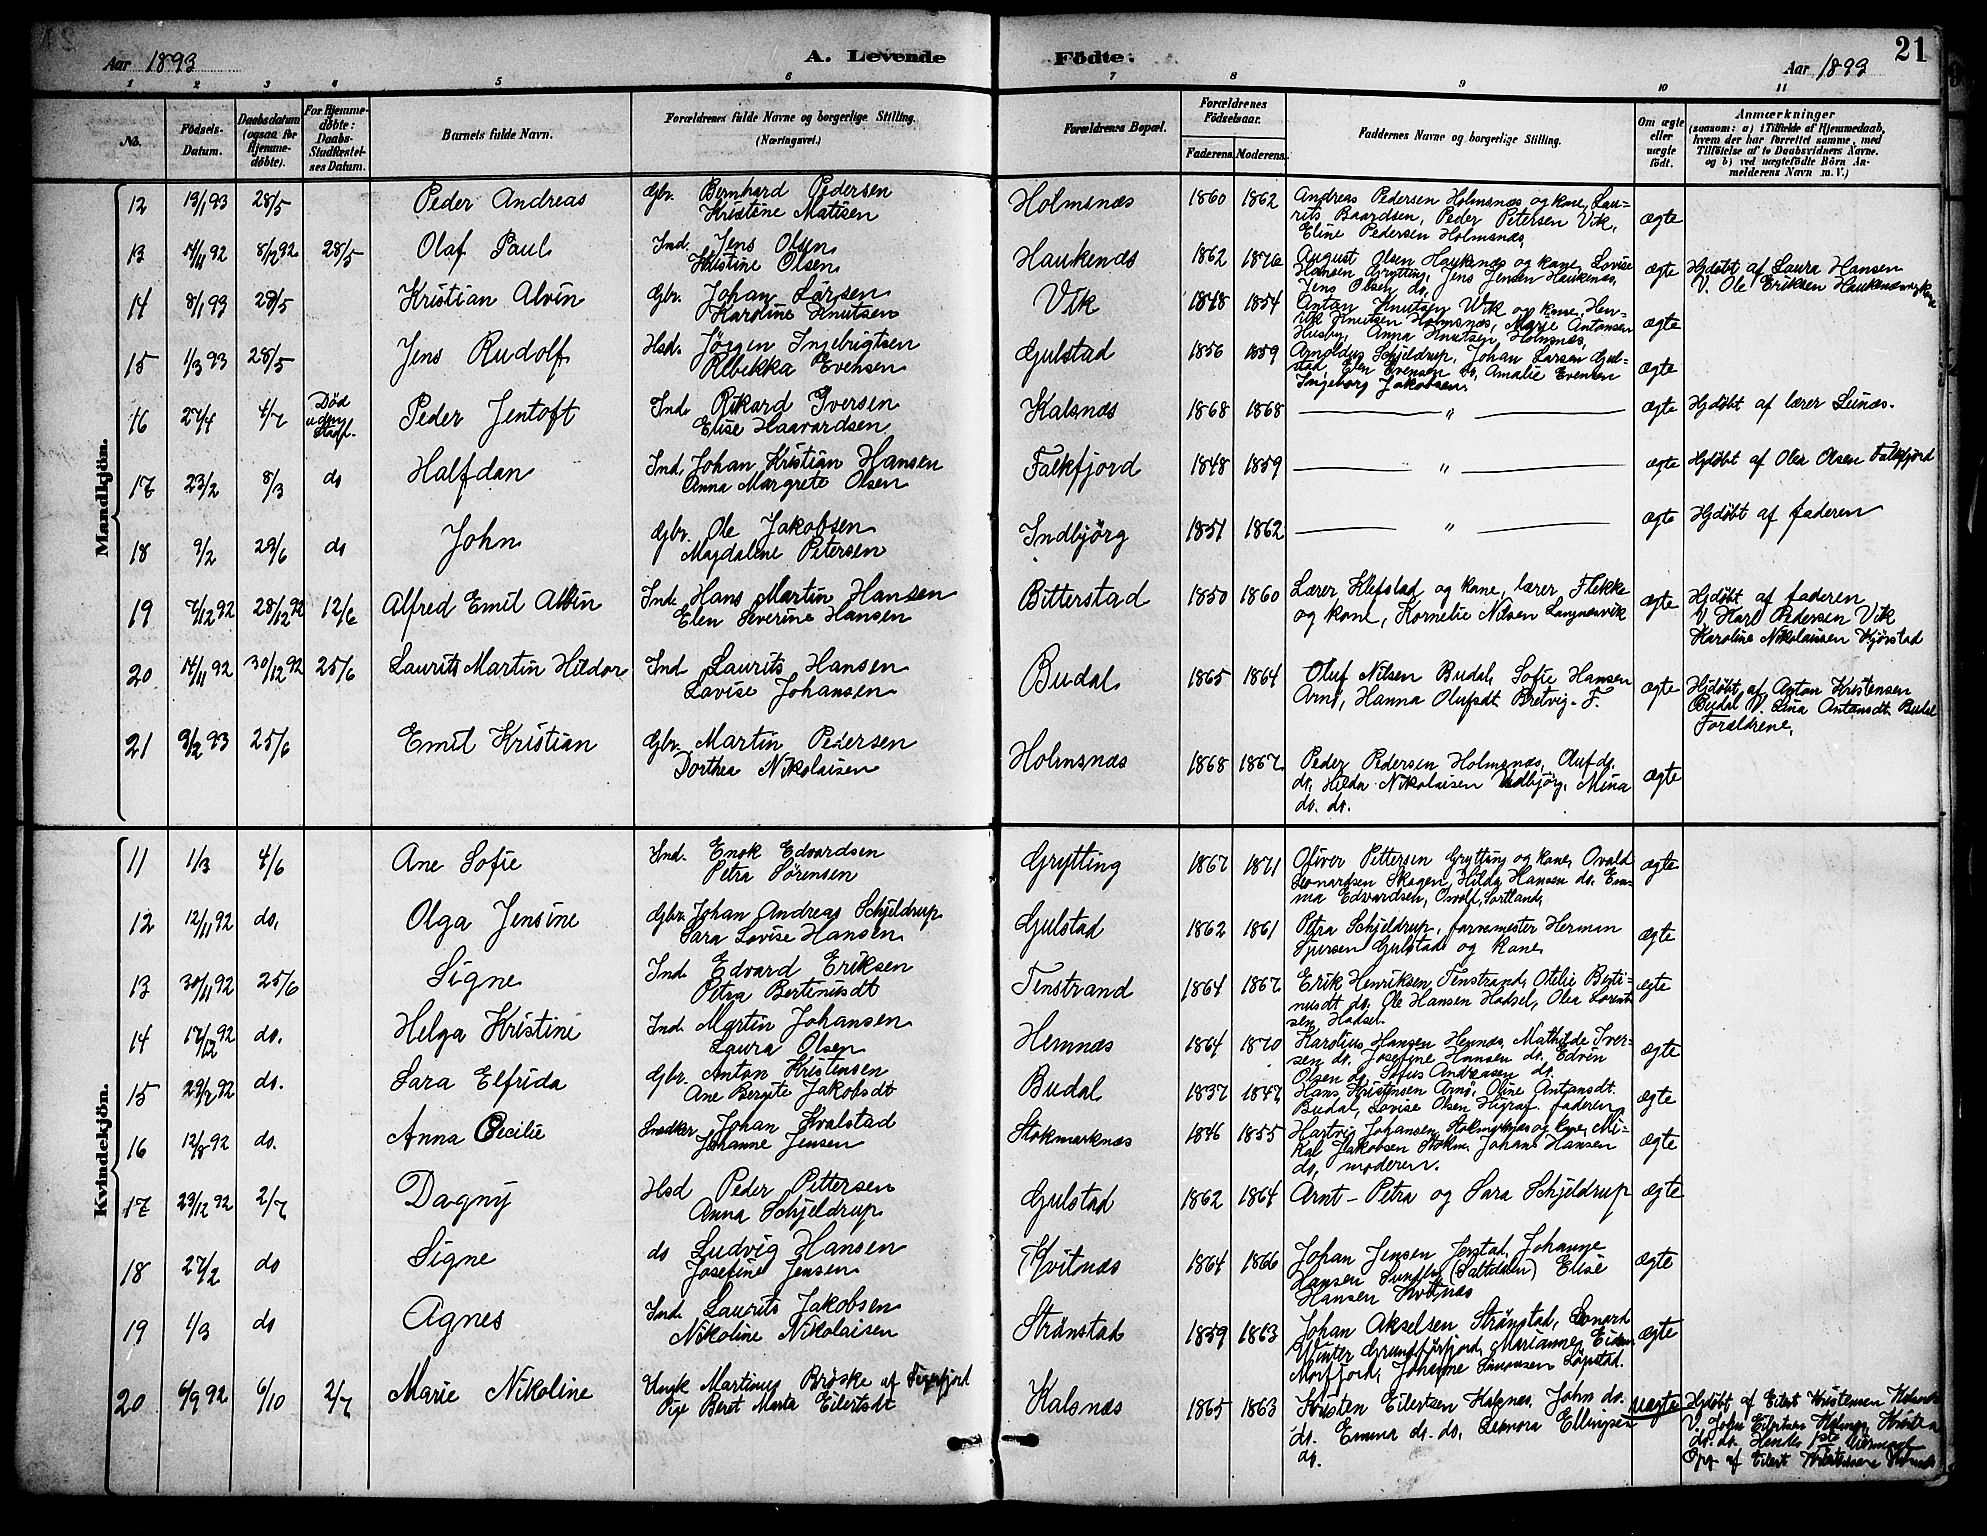 Aar 1893 A. Levende Födte. Aar 1893 21
1 2 3 4 5 6 7 8 9 10 11
No. Födsels-Datum. Daabsdatum (ogsaa for Hjemmedöbte). For Hjemmedöbte: Daabs-Stadfæstelses Datum. Barnets fulde Navn. Forældrenes fulde Navne og borgerlige Stilling. (Næringsvei.) Forældrenes Bopæl. Forældrenes Födselsaar. Faderens. Moderens. Faddernes Navne og borgerlige Stilling. Om ægte eller uægte födt. Anmærkninger (saasom: a) i Tilfælde af Hjemmedaab, hvem der har forrettet samme, med Tilföielse af to Daabsvidners Navne. og b) ved uægtefödte Börn Anmelderens Navn m. V.)
Mandkjön.
12 19/1 93 28/5 Peder Andreas Gbr. Bernhard Pedersen Holmsnæs 1860 1862 Andreas Pedersen Holmsnæs og kone, Lau-
Kristine Matisen rits Baardsen, Peder Petersen Vik, ægte
Eline Pedersen Holmsnæs
13 14/11 92 8/12 92 28/5 Olaf Paul Ind. Jens Olsen Haukenæs 1862 1876 August Olsen Haukenæs og kone, Lovise ægte Hjdöbt af Laura Hansen
Kristine Olsen Hansen Grytting, Jens Jensen Haukenæs, V. Ole Eriksen Haukenæs og kone
Jens Olsen do.
14 8/1 93 28/5 Kristian Alvin Gbr. Johan Larsen Vik 1848 1854 Antan Knutsen Wik og kone, Hen-
Karoline Knutsen rik Knutsen Holmsnæs, Marie Antonsen ægte
Husby, Anna Knutsen, Holmsnæs,
15 1/3 93 28/5 Jens Rudolf Hsd. Jørgen Ingebrigtsen Gulstad 1856 1859 Arnoldus Schjeldrup, Johan Larsen Gul-
Rebekka Evensen stad, Elen Evensen do, Amalie Evensen ægte
Ingeborg Jakobsen.
16 27/4 4/7 Död uden Stadf. Peder Jentoft Ind. Rikard Iversen Kalsnæs 1868 1868 — " — ægte Hjdöbt af lærer Lunås.
Elise Haavardsen
17 23/2 8/3 do Halfdan Ind. Johan Kristian Hansen Falkfjord 1848 1859 — " — ægte Hjdöbt af Olea Olsen Falkfjord
Anna Margrete Olsen
18 9/2 29/6 do John Gbr. Ole Jakobsen Indbjörg 1851 1862 — " — ægte Hjdöbt af faderen
Magdalene Petersen
19 7/12 92 28/12 92 12/6 Alfred Emil Albin Ind. Hans Martin Hansen Bitterstad 1850 1860 Lærer Klefstad og kone, lærer Flekke ægte Hjdöbt af faderen
Elen Severine Hansen og kone, Kornelie Nilsen Langnesvik V. Karl Pedersen Vik
Karoline Nikolaisen Kjørstad
20 14/11 92 30/12 92 25/6 Laurits Martin Hildor Ind Laurits Hansen Budal 1865 1864 Oluf Nilsen Budal, Sofie Hansen ægte Hjdöbt af Anton Kristensen
Lovise Johansen Arnö, Hanna Olufsdt Bretvig. F. Budal V. Lina Antonsdt. Budal
Forældrene.
21 9/2 93 25/6 Emil Kristian Gbr. Martin Pedersen Holmsnæs 1868 1867 Peder Pedersen Holmsnæs, Oluf do.
Dorthea Nikolaisen do, Hilda Nikolaisen Indbjörg, Mina ægte
do. do.
Kvindekjön.
11 1/3 4/6 Ane Sofie Ind. Enok Edvardsen Grytting 1867 1871 Oliver Pittersen Grytting og kone, Ovald ægte
Petra Sørensen Leonardsen Skogen, Hilda Hansen do. Em-
ma Edvardsen, Osvold, Sortland,
12 12/11 92 do. Olga Jensine Gbr. Johan Andreas Schjeldrup Gulstad 1862 1861 Petra Schjeldrup, farvemester Herman ægte
Sara Lovise Hansen Sjursen Gulstad og kone
13 30/11 92 25/6 Signe Ind. Edvard Eriksen Tenstrand 1864 1867 Erik Henriksen Tenstrand, Otelie Berti- ægte
Petra Bertinusdt nusdt do. Ole Hansen Hadsel, Olea Lorent-
sen Hadsel
14 17/12 92 do. Helga Kristine Ind. Martin Johansen Hemnæs 1864 1870 Karolius Hansen Hemnæs, Mathilde Iver-
Laura Olsen sen do, Josefine Hansen do. Edvin ægte
Olsen do, Sefus Andreasen do.
15 29/12 92 do. Sara Elfrida Gbr. Anton Kristensen Budal 1837 1847 Hans Kristensen Arnö, Oline Antonsdt.
Ane Bergite Jakobsdt Budal, Lovise Olsen, faderen ægte
16 12/8 92 do. Anna Cecilie Snedker Johan Kvalstad Stokmarknæs 1846 1855 Hartvig Johansen Stokmarknæs og kone, Mi-
Johanne Jensen kal Jakobsen Stokm. Johan Hansen ægte
do, moderen.
17 29/12 92 2/7 Dagny Hsd Peder Pittersen Gulstad 1862 1864 Arnt- Petra og Sara Schjeldrup ægte
Anna Schjeldrup
18 27/2 do Signe do Ludvig Hansen Kvitnæs 1864 1866 Johan Jensen Jerstad, Johanne ægte
Josefine Jensen Hansen (Saltdalen) Elise
Hansen Kvitnæs
19 1/3 do Agnes Ind. Laurits Jakobsen Strånstad 1859 1863 Johan Akselsen Strånstad, Leonard ægte
Nikoline Nikolaisen Winter Grundførfjord, Marianne
Morfjord, Johanne Simonsen
20 6/9 92 6/10 2/7 Marie Nikoline Ungk Martinus Brøske af Kalsnæs 1865 1863 Kristen Eilertsen Kalsnæs, John do. uægte Hjdöbt af Eilert Kristensen
Pige Beret Marta Eilertsdt do. Emma do. do, Leonora Ellingsen V. John Eilertsen
do. do. do.
af Eilert Kristensen